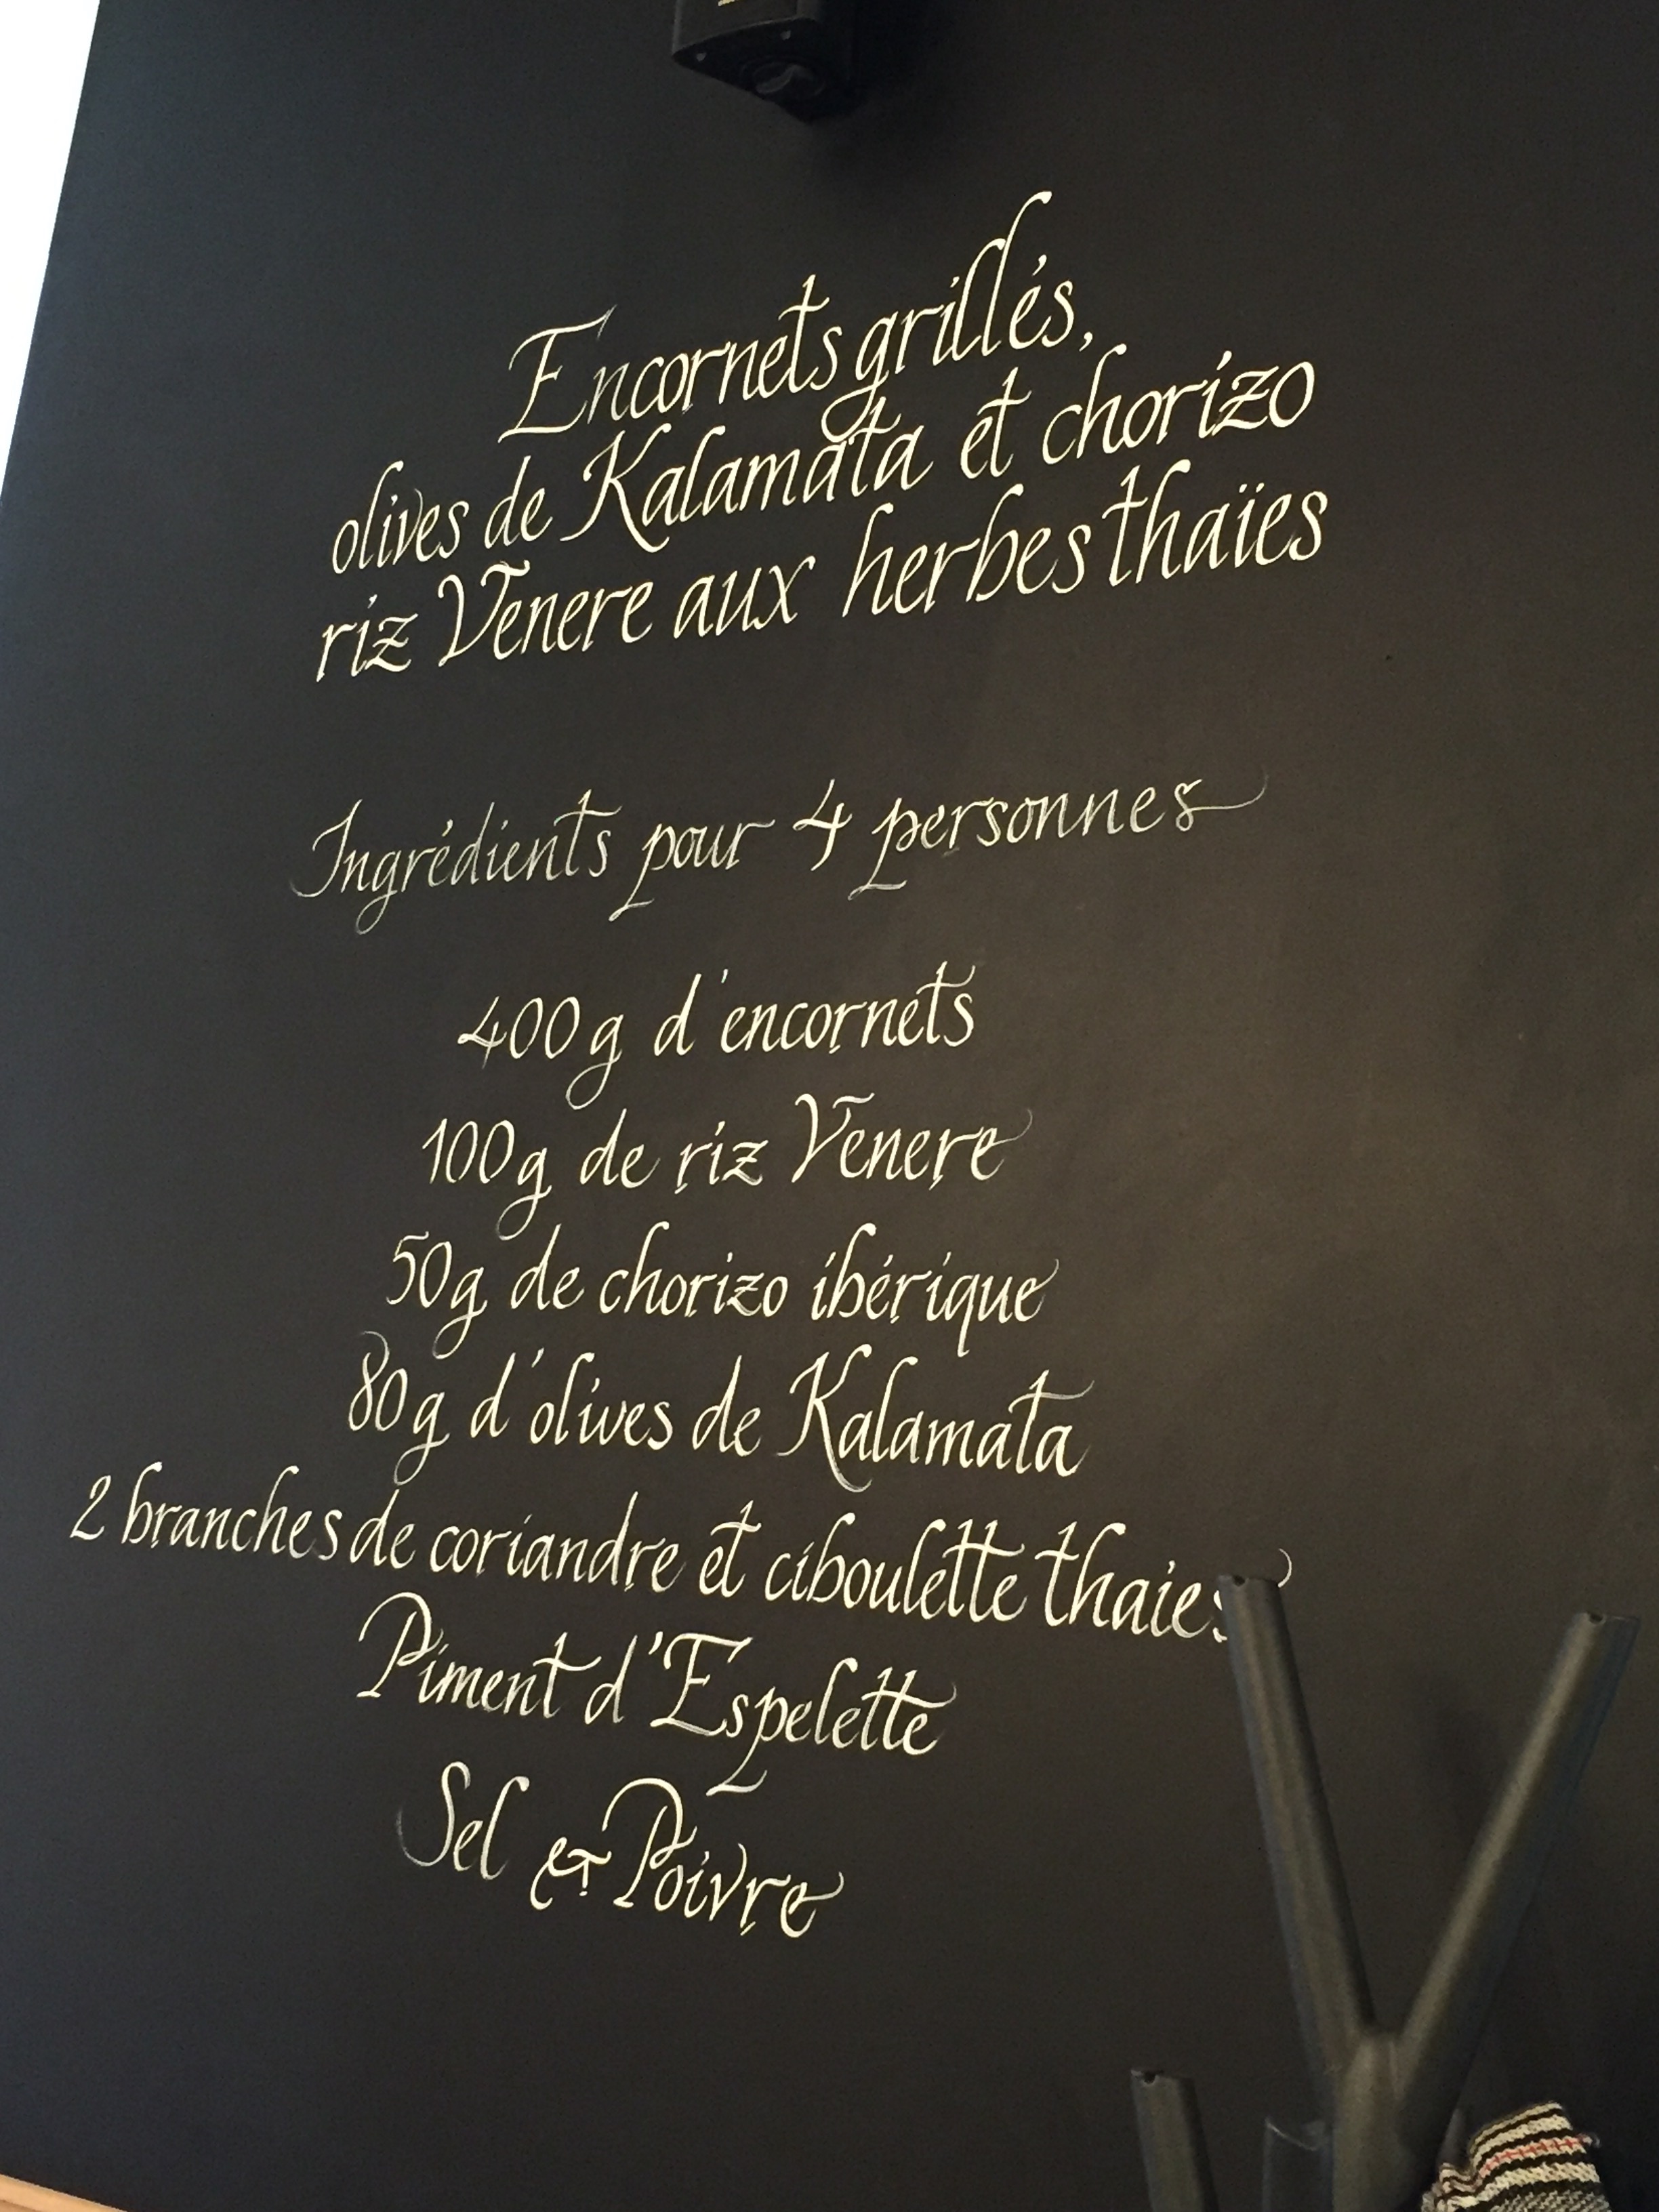 Encornets grillés,
olives de Kalamata et chorizo
riz Venere aux herbes thaïes
Ingrédients pour 4 personnes
400g d'encornets
100g de riz Venere
50g de chorizo ibérique
80g d'olives de Kalamata
2 branches de coriandre et ciboulette thaies
Piment d'Espelette
Sel & Poivre